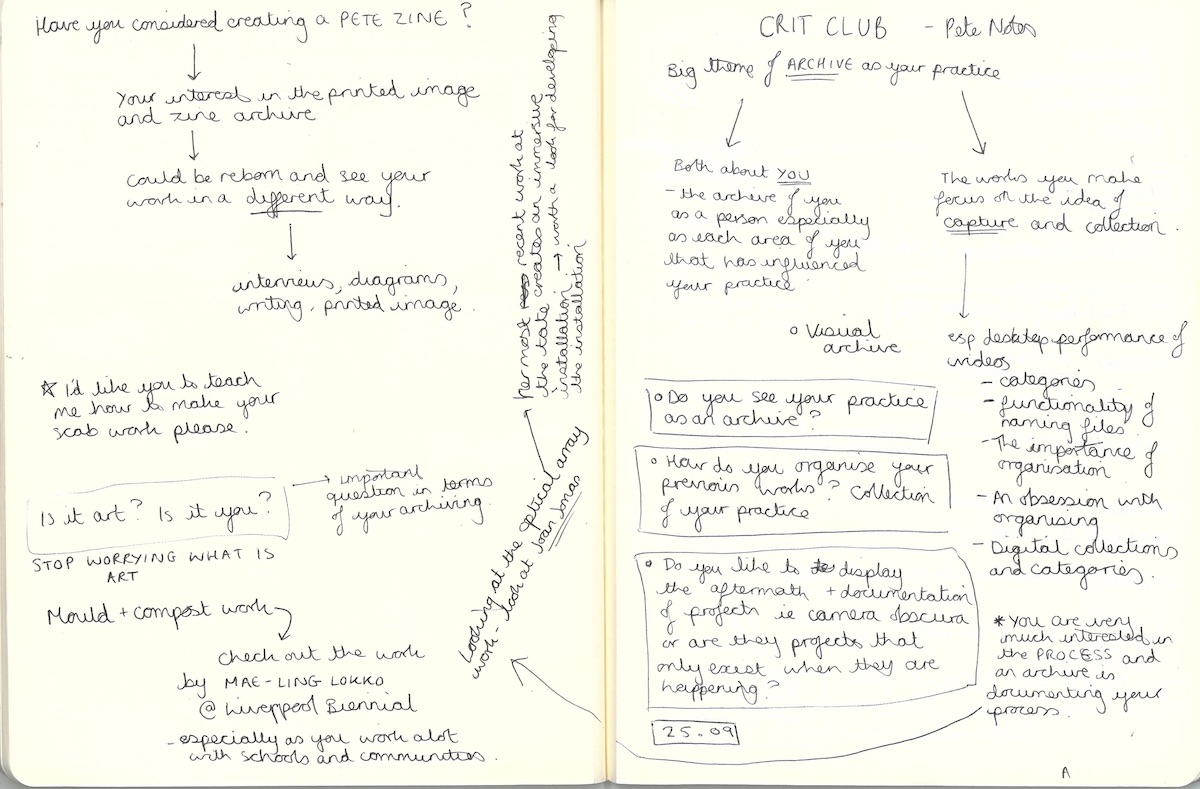 Have you considered creating a PETE ZINE?
Your interest in the printed image
and zine archive
could be reborn and see your
work in a different way.
interviews, diagrams,
writing, printed image.
☆ I'd like you to teach
me how to make your
scab work please.
Is it art? Is it you?
→ important
question in terms
of your archiving.
STOP WORRYING WHAT IS
ART
Mould + compost work
check out the work
by MAE-LING LOKKO
@ Liverpool Biennial
- especially as you work alot
with schools and communities.
Looking at the optical array
work - look at Joan Jonas
her most recent work at
the tate creates an immersive
installation → worth a look for developing
the installation
CRIT CLUB - Pete Notes
Big theme of ARCHIVE as your practice
Both about YOU
- the archive of you
as a person especially
as each area of you
that has influenced
your practice
o Visual
archive
The works you make
focus on the idea of
capture and collection.
esp desktop performance of
videos
- categories
- functionality of
naming files
- The importance of
organisation
- An obsession with
organising
- Digital collections
and categories.
o Do you see your practice
as an archive?
o How do you organise your
previous works? Collection
of your practice
• Do you like to display
the aftermath + documentation
of projects ie camera obscura
or are they projects that
only exist when they are
happening?
* You are very
much interested in
the PROCESS and
an archive is
documenting your
process.
25.09
A